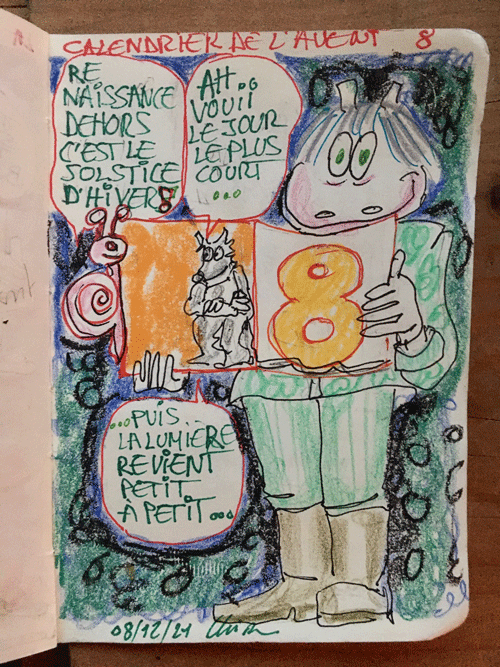 CALENDRIER DE L'AVENT 8
RE
NAISSANCE
DEHORS
C'EST LE
SOLSTICE
D'HIVER
AH..
VOUii
LE JOUR
LE PLUS
COURT
...
8
...PUIS..
LA LUMIÈRE
REVIENT
PETIT
A PETIT...
08/12/21